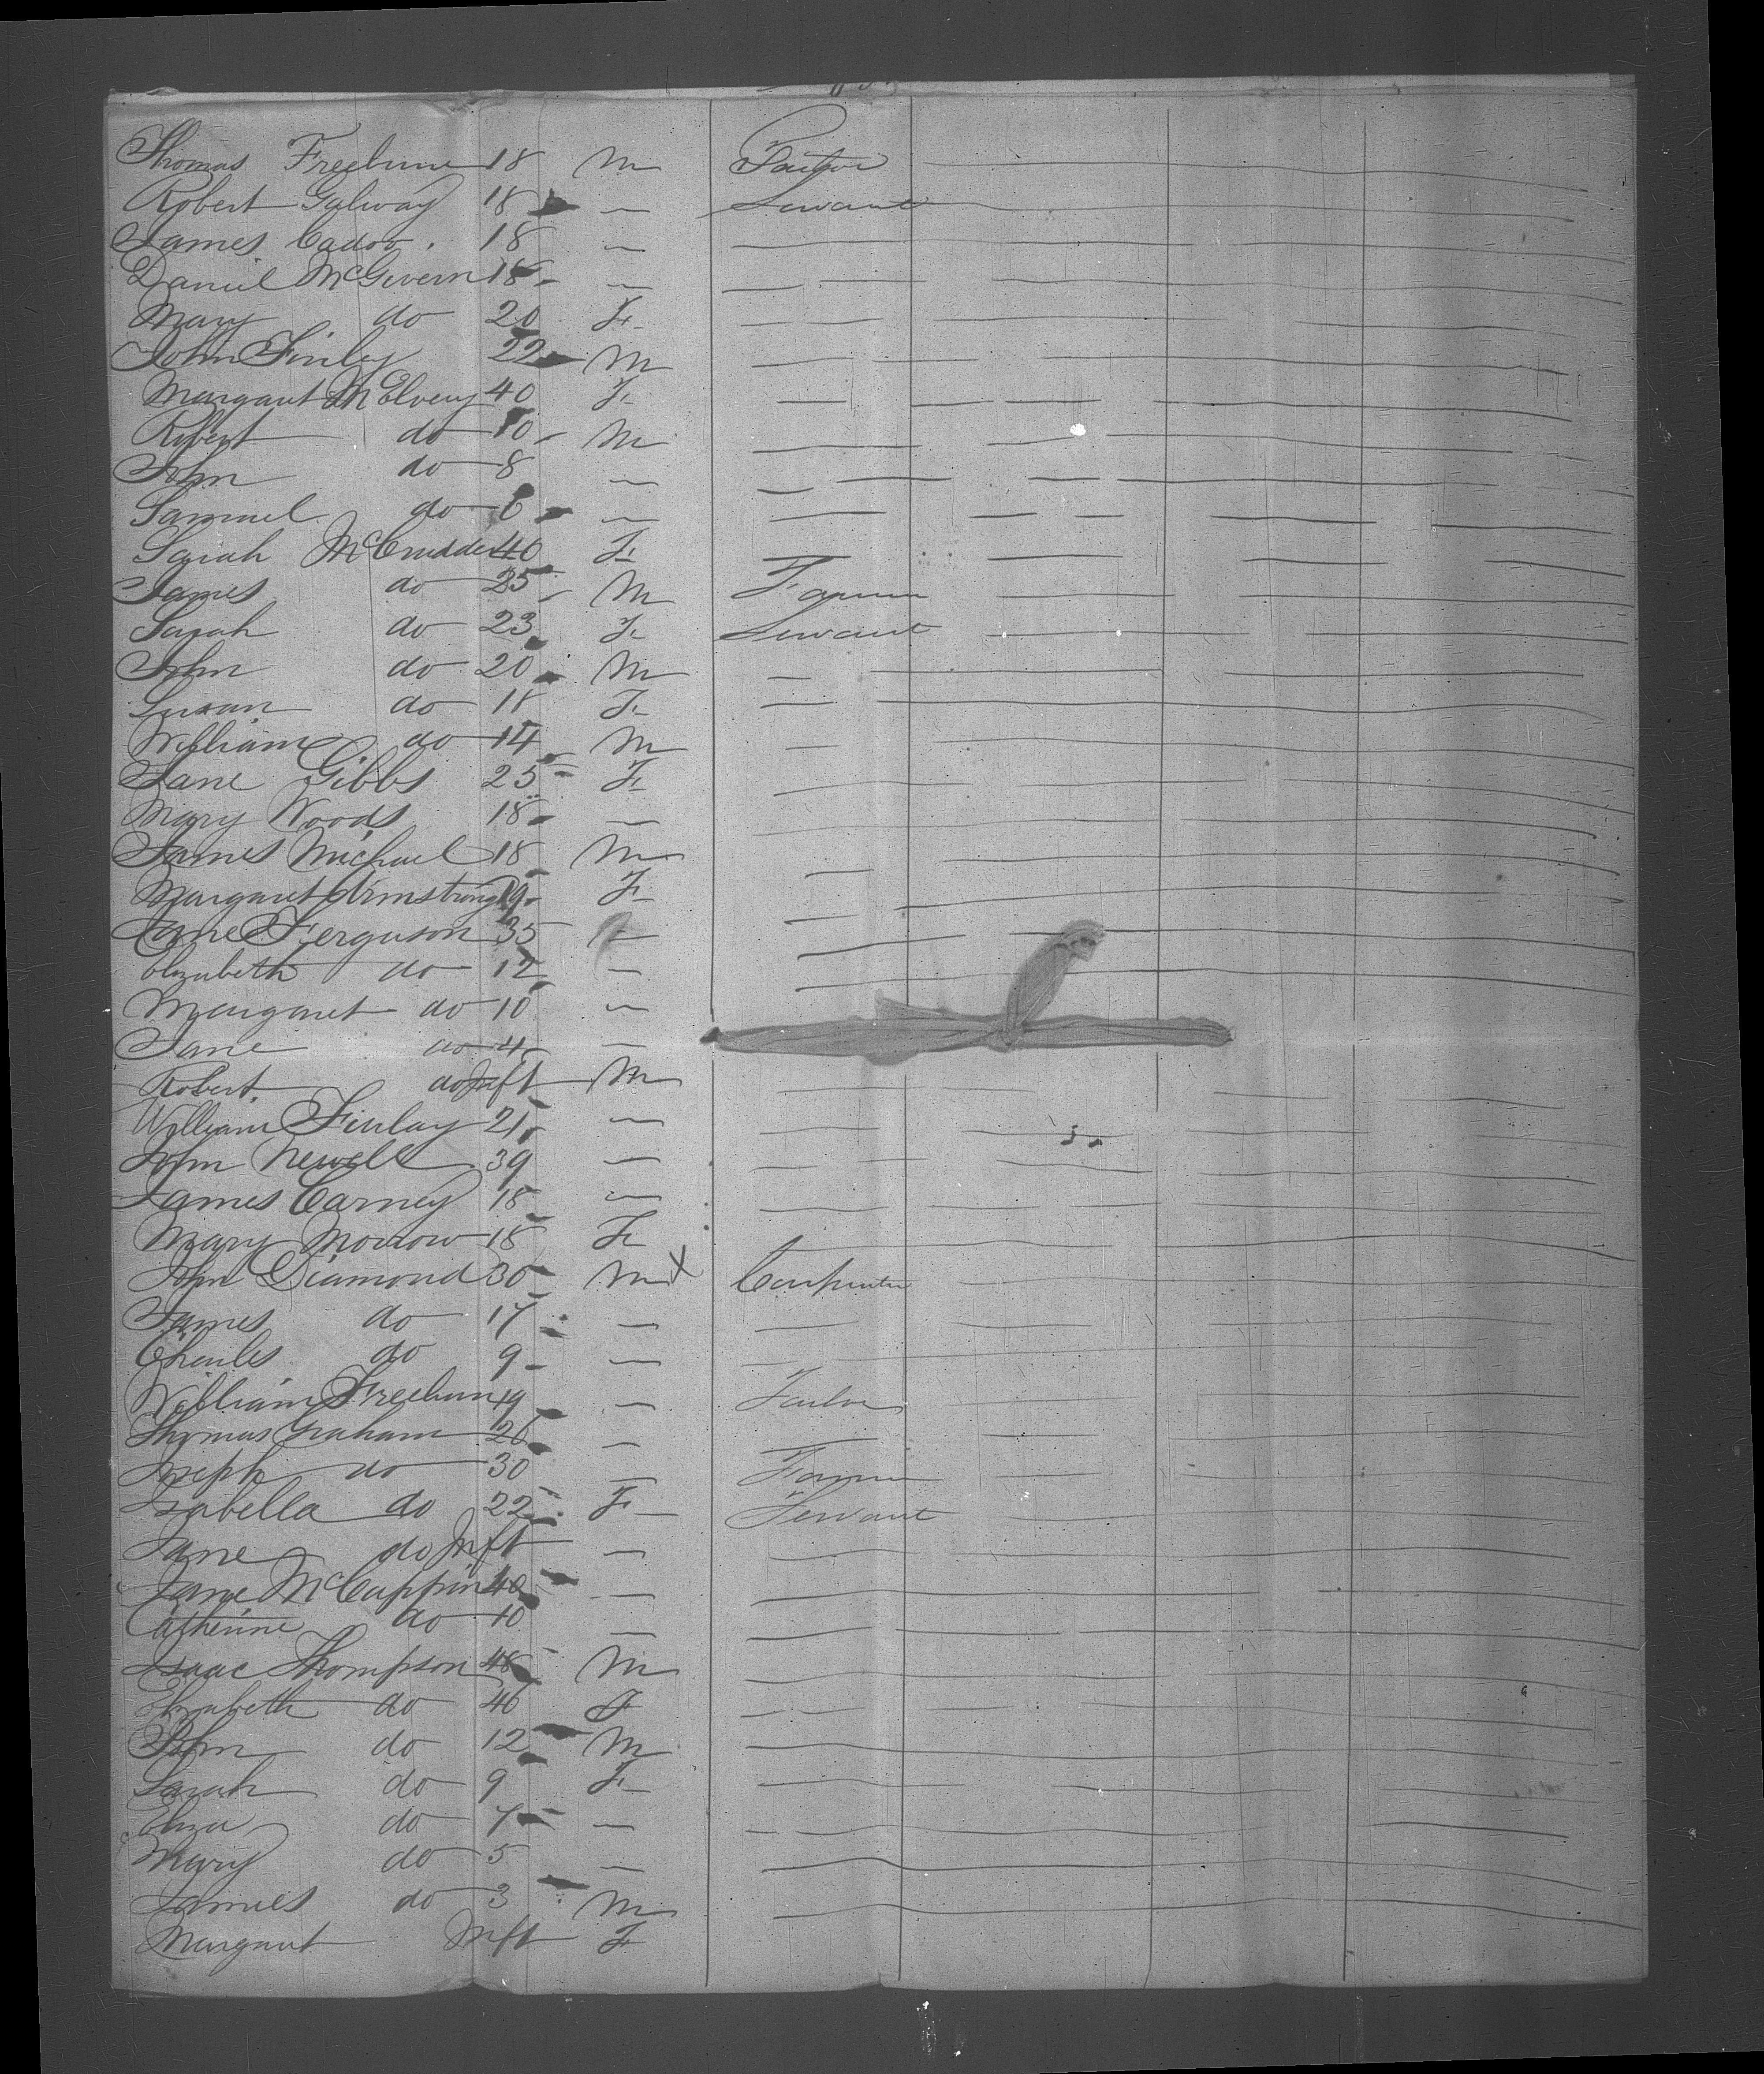 Thomas Freeburne 18 M
Robert Galway 18 — Servant
James Cadoo . 18 —
Daniel McGivern 18 —
Mary do 20 F
John Finley 22 M
Margaret McElveny 40 F
Robert do 10 M
John do 8 —
Samuel do 6 —
Sarah McCrudden 40 F
James do 25 M Farmer
Sarah do 23 F Servant
John do 20 M
Susan do 18 F
William do 14 M
Jane Gibbs 25 F
Mary Woods 18 —
James Michael 18 M
Margaret Armstrong 19 F
Jane Ferguson 35 —
Elizabeth do 12 —
Margaret do 10 —
Jane do 4 —
Robert do Inft M
William Finlay 21 —
John Newell 39 —
James Carney 18 —
Mary Morrow 18 F
John Diamond 30 M X Carpenter
James do 17 —
Charles do 9 —
William Freeburn 19 —
Thomas Graham 26 —
Joseph do 30 — Farmer
Isabella do 22 F Servant
Jane do Inft —
Jane McCappin 40 —
Catherine do 10 —
Isaac Thompson 48 M
Elizabeth do 40 F
John do 12 M
Sarah do 9 F
Eliza do 7 —
Mary do 5 —
James do 3 M
Margaret Inft F